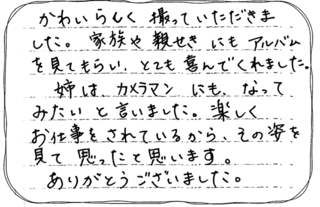 かわいらしく撮っていただきま
した。家族や親せきにもアルバム
を見てもらい、とても喜んでくれました。
姉は、カメラマンにも、なって
みたいと言いました。楽しく
お仕事をされているから、その姿を
見て思ったと思います。
ありがとうございました。